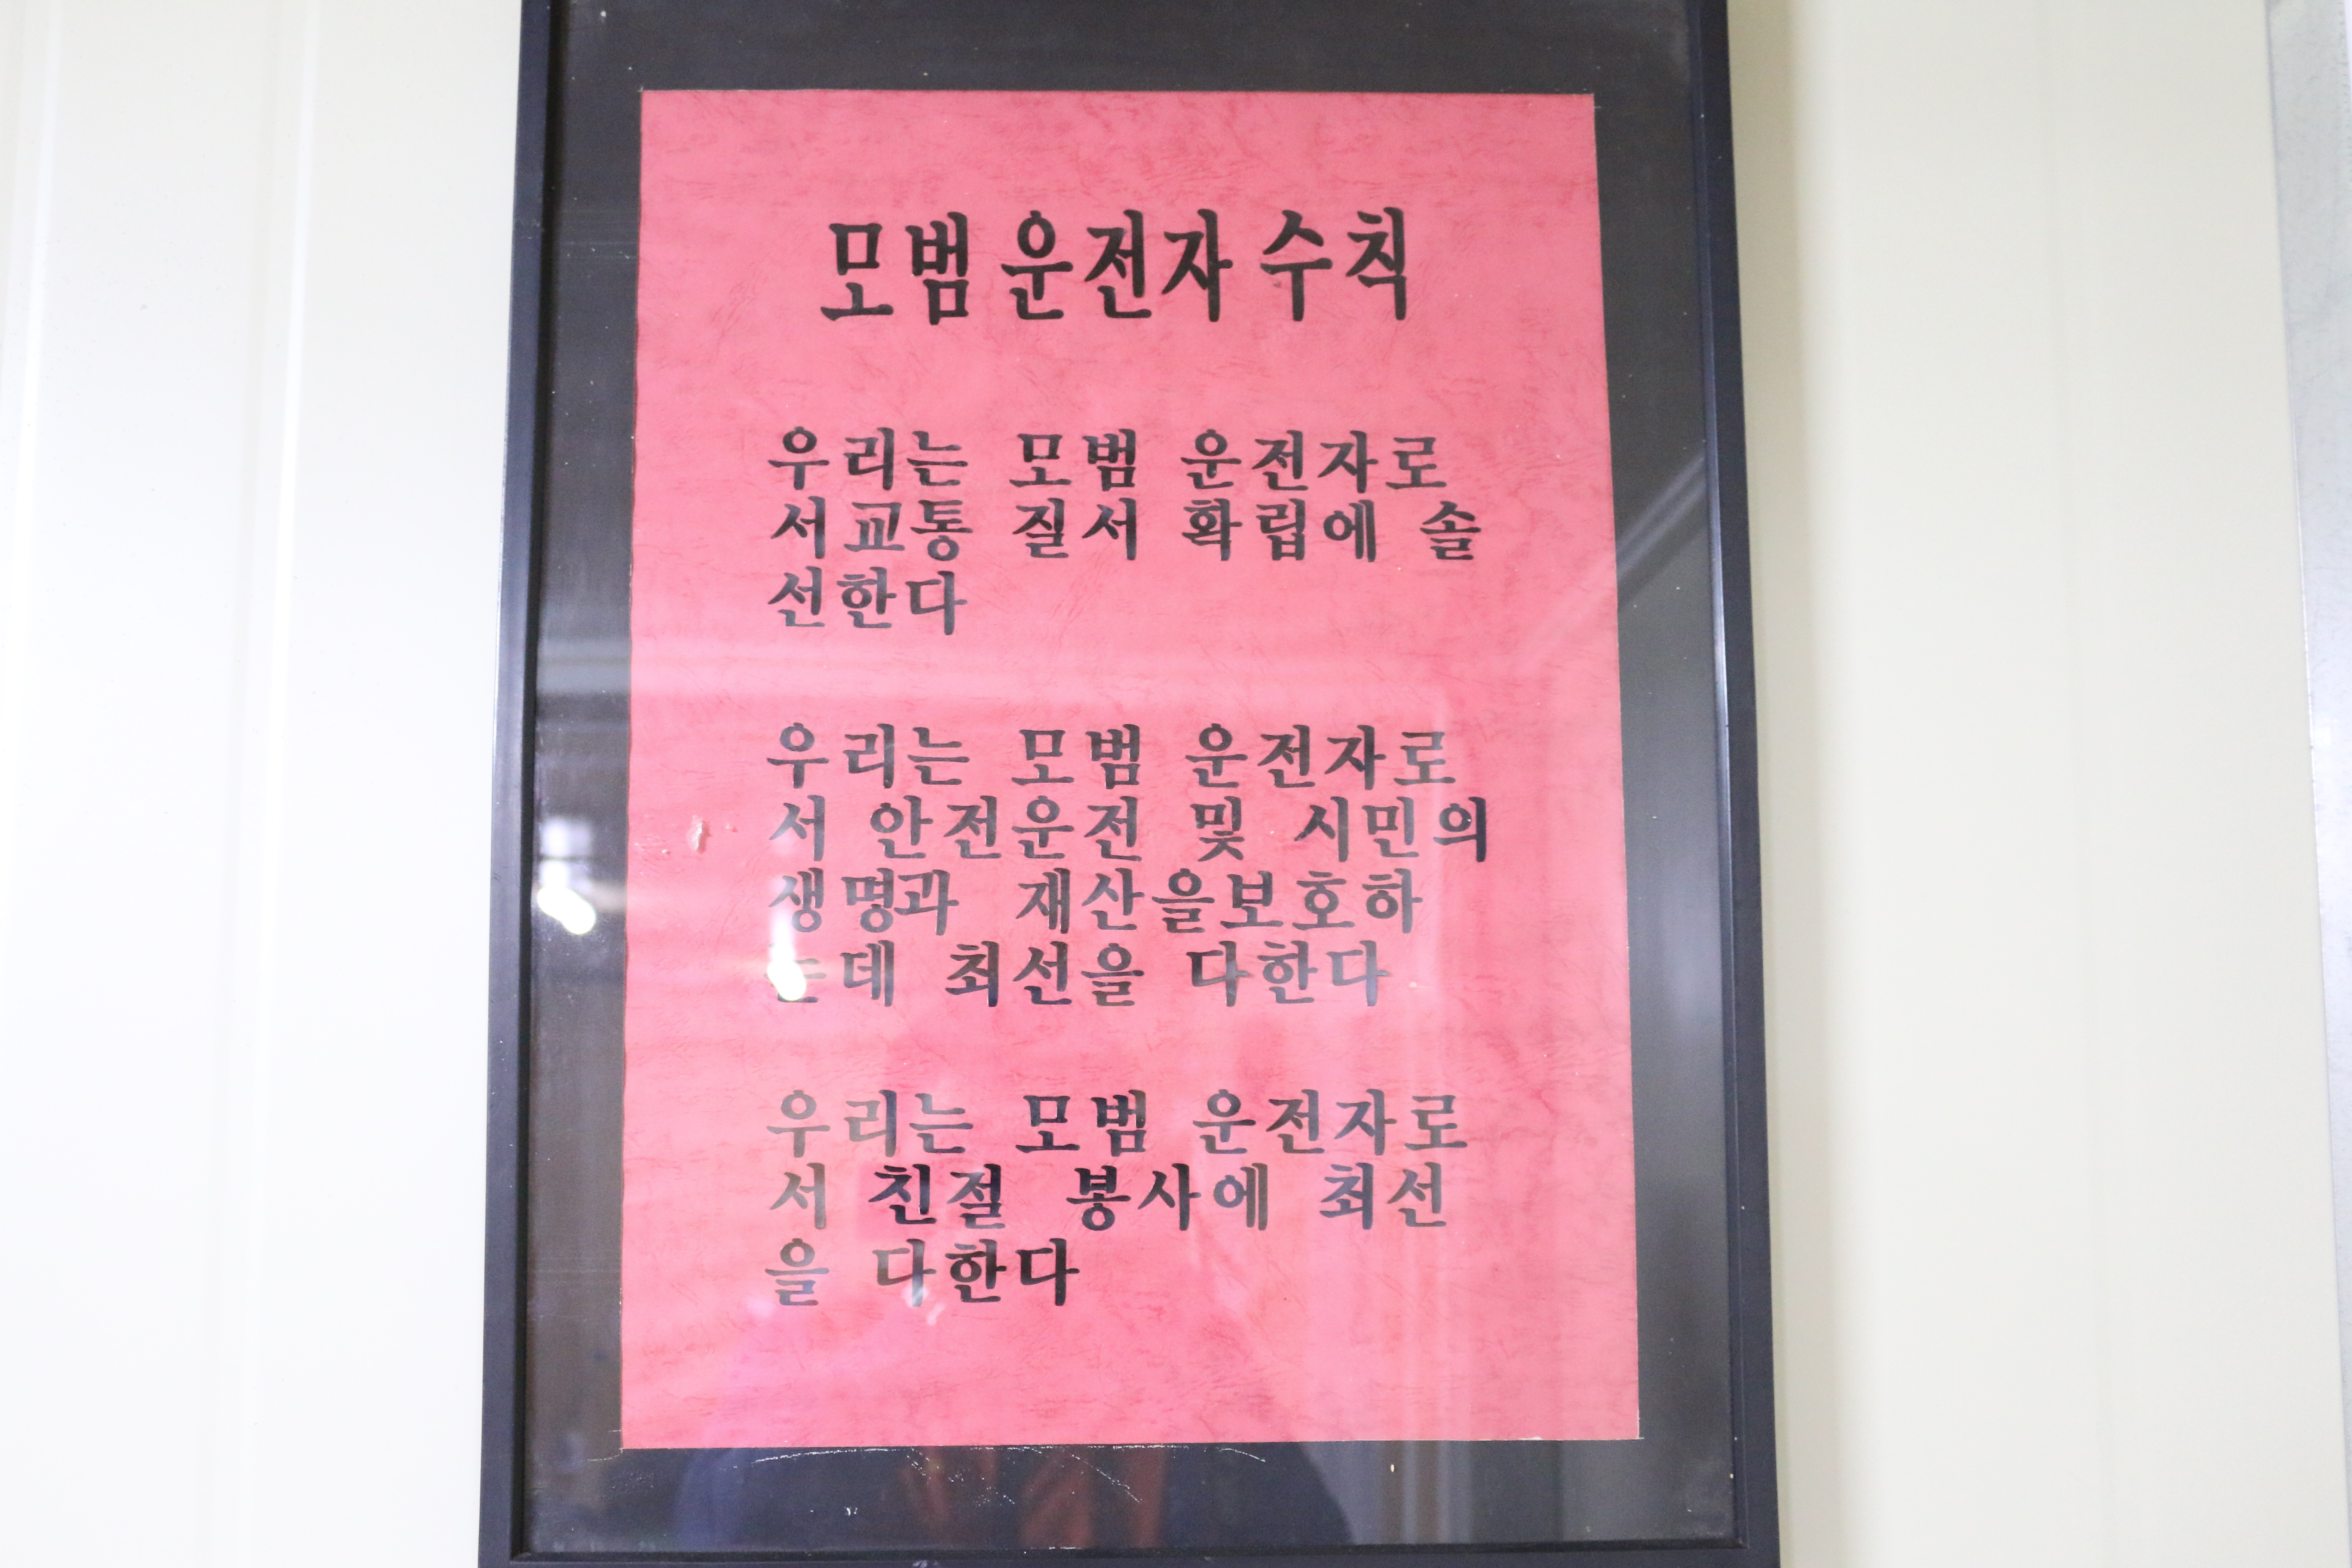 모범 운전자 수칙
우리는 모범 운전자로
서교통 질서 확립에 솔
선한다
우리는 모범 운전자로
서 안전운전 및 시민의
생명과 재산을보호하
는데 최선을 다한다
우리는 모범 운전자로
서 친절 봉사에 최선
을 다한다